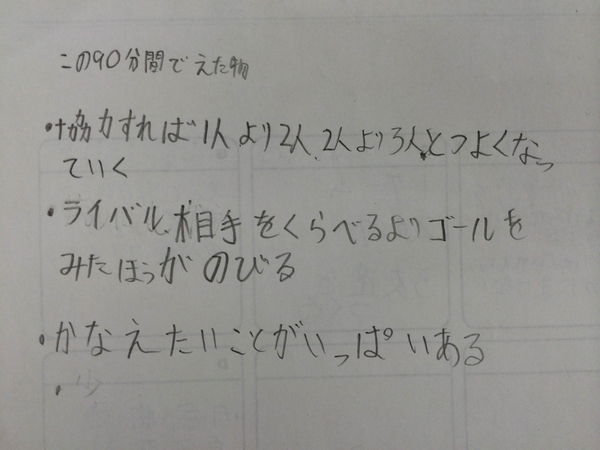 この90分間でえた物
・協力すれば1人より2人、2人より3人とつよくなっ
ていく
・ライバル、相手をくらべるよりゴールを
みたほうがのびる
・かなえたいことがいっぱいある
・